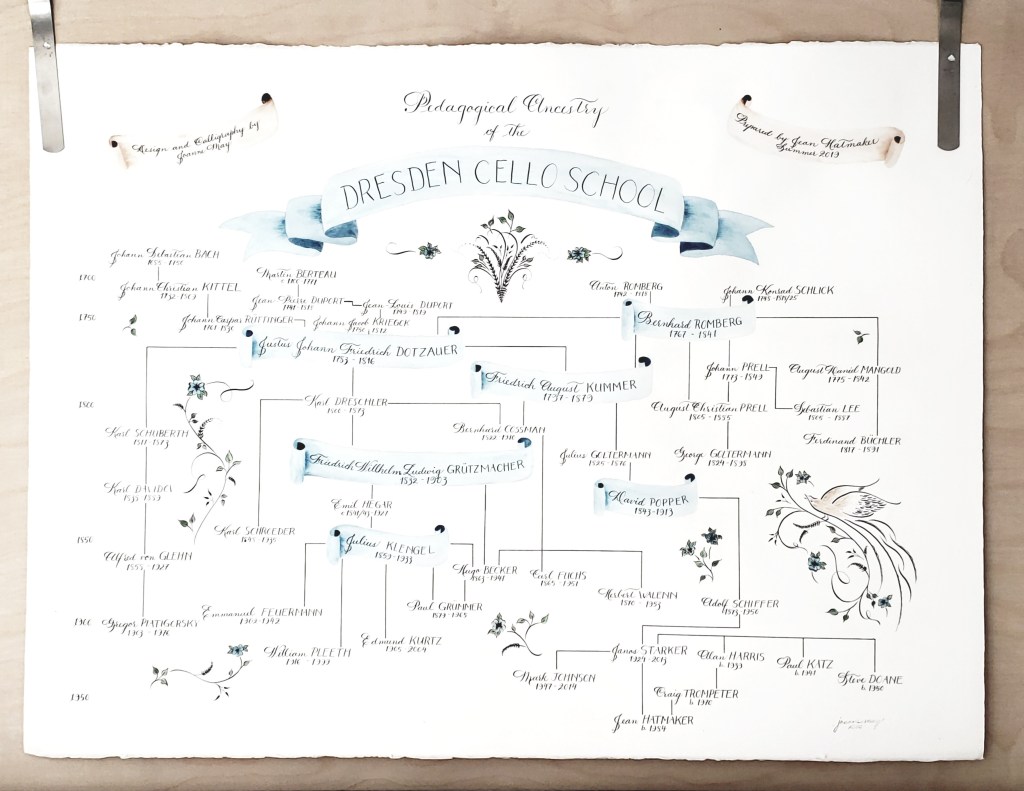 Pedagogical Ancestry
of the
DRESDEN CELLO SCHOOL
Design and Calligraphy by
Joanne May
Prepared by Jean Hatmaker
Summer 2019
1700
1750
1800
1850
1900
1950
Johann Sebastian BACH
Johann Christian KITTEL
Martin BERTEAU
Jean Pierre DUPORT
Jean Louis DUPORT
Johann Caspar RÜTTINGER
Johann Jacob KRIEGCK
Anton ROMBERG
Johann Konrad SCHLICK
Bernhard ROMBERG
1767 - 1841
Justus Johann Friedrich DOTZAUER
Friedrich August KUMMER
1797 - 1879
Johann PRELL
1773 - 1849
August Daniel MANGOLD
1775 - 1842
Karl DRESCHLER
1800 - 1873
August Christian PRELL
1805 - 1885
Sebastian LEE
1805 - 1887
Karl SCHUBERTH
1811 - 1873
Bernhard COSSMAN
1822 - 1910
Ferdinand BÜCHLER
1817 - 1891
Friedrich Wilhelm Ludwig GRÜTZMACHER
1832 - 1903
Julius GOLTERMANN
1825 - 1876
George GOLTERMANN
1824 - 1898
Karl DAVIDOV
1838 - 1889
Emil HEGAR
David POPPER
1843 - 1913
Karl SCHROEDER
Julius KLENGEL
1859 - 1933
Alfred von GLEHN
1858 - 1927
Hugo BECKER
1863 - 1941
Carl FUCHS
1865 - 1951
Herbert WALENN
Adolf SCHIFFER
1873 - 1950
Emmanuel FEUERMANN
1902 - 1942
Paul GRÜMMER
1879 - 1965
Gregor PIATIGORSKY
1903 - 1976
William PLEETH
1916 - 1999
Edmund KURTZ
1908 - 2004
Janos STARKER
1924 - 2013
Alan HARRIS
Paul KATZ
b. 1941
Steve DOANE
Mark JOHNSON
1947 - 2014
Craig TROMPETER
b. 1970
Jean HATMAKER
b. 1984